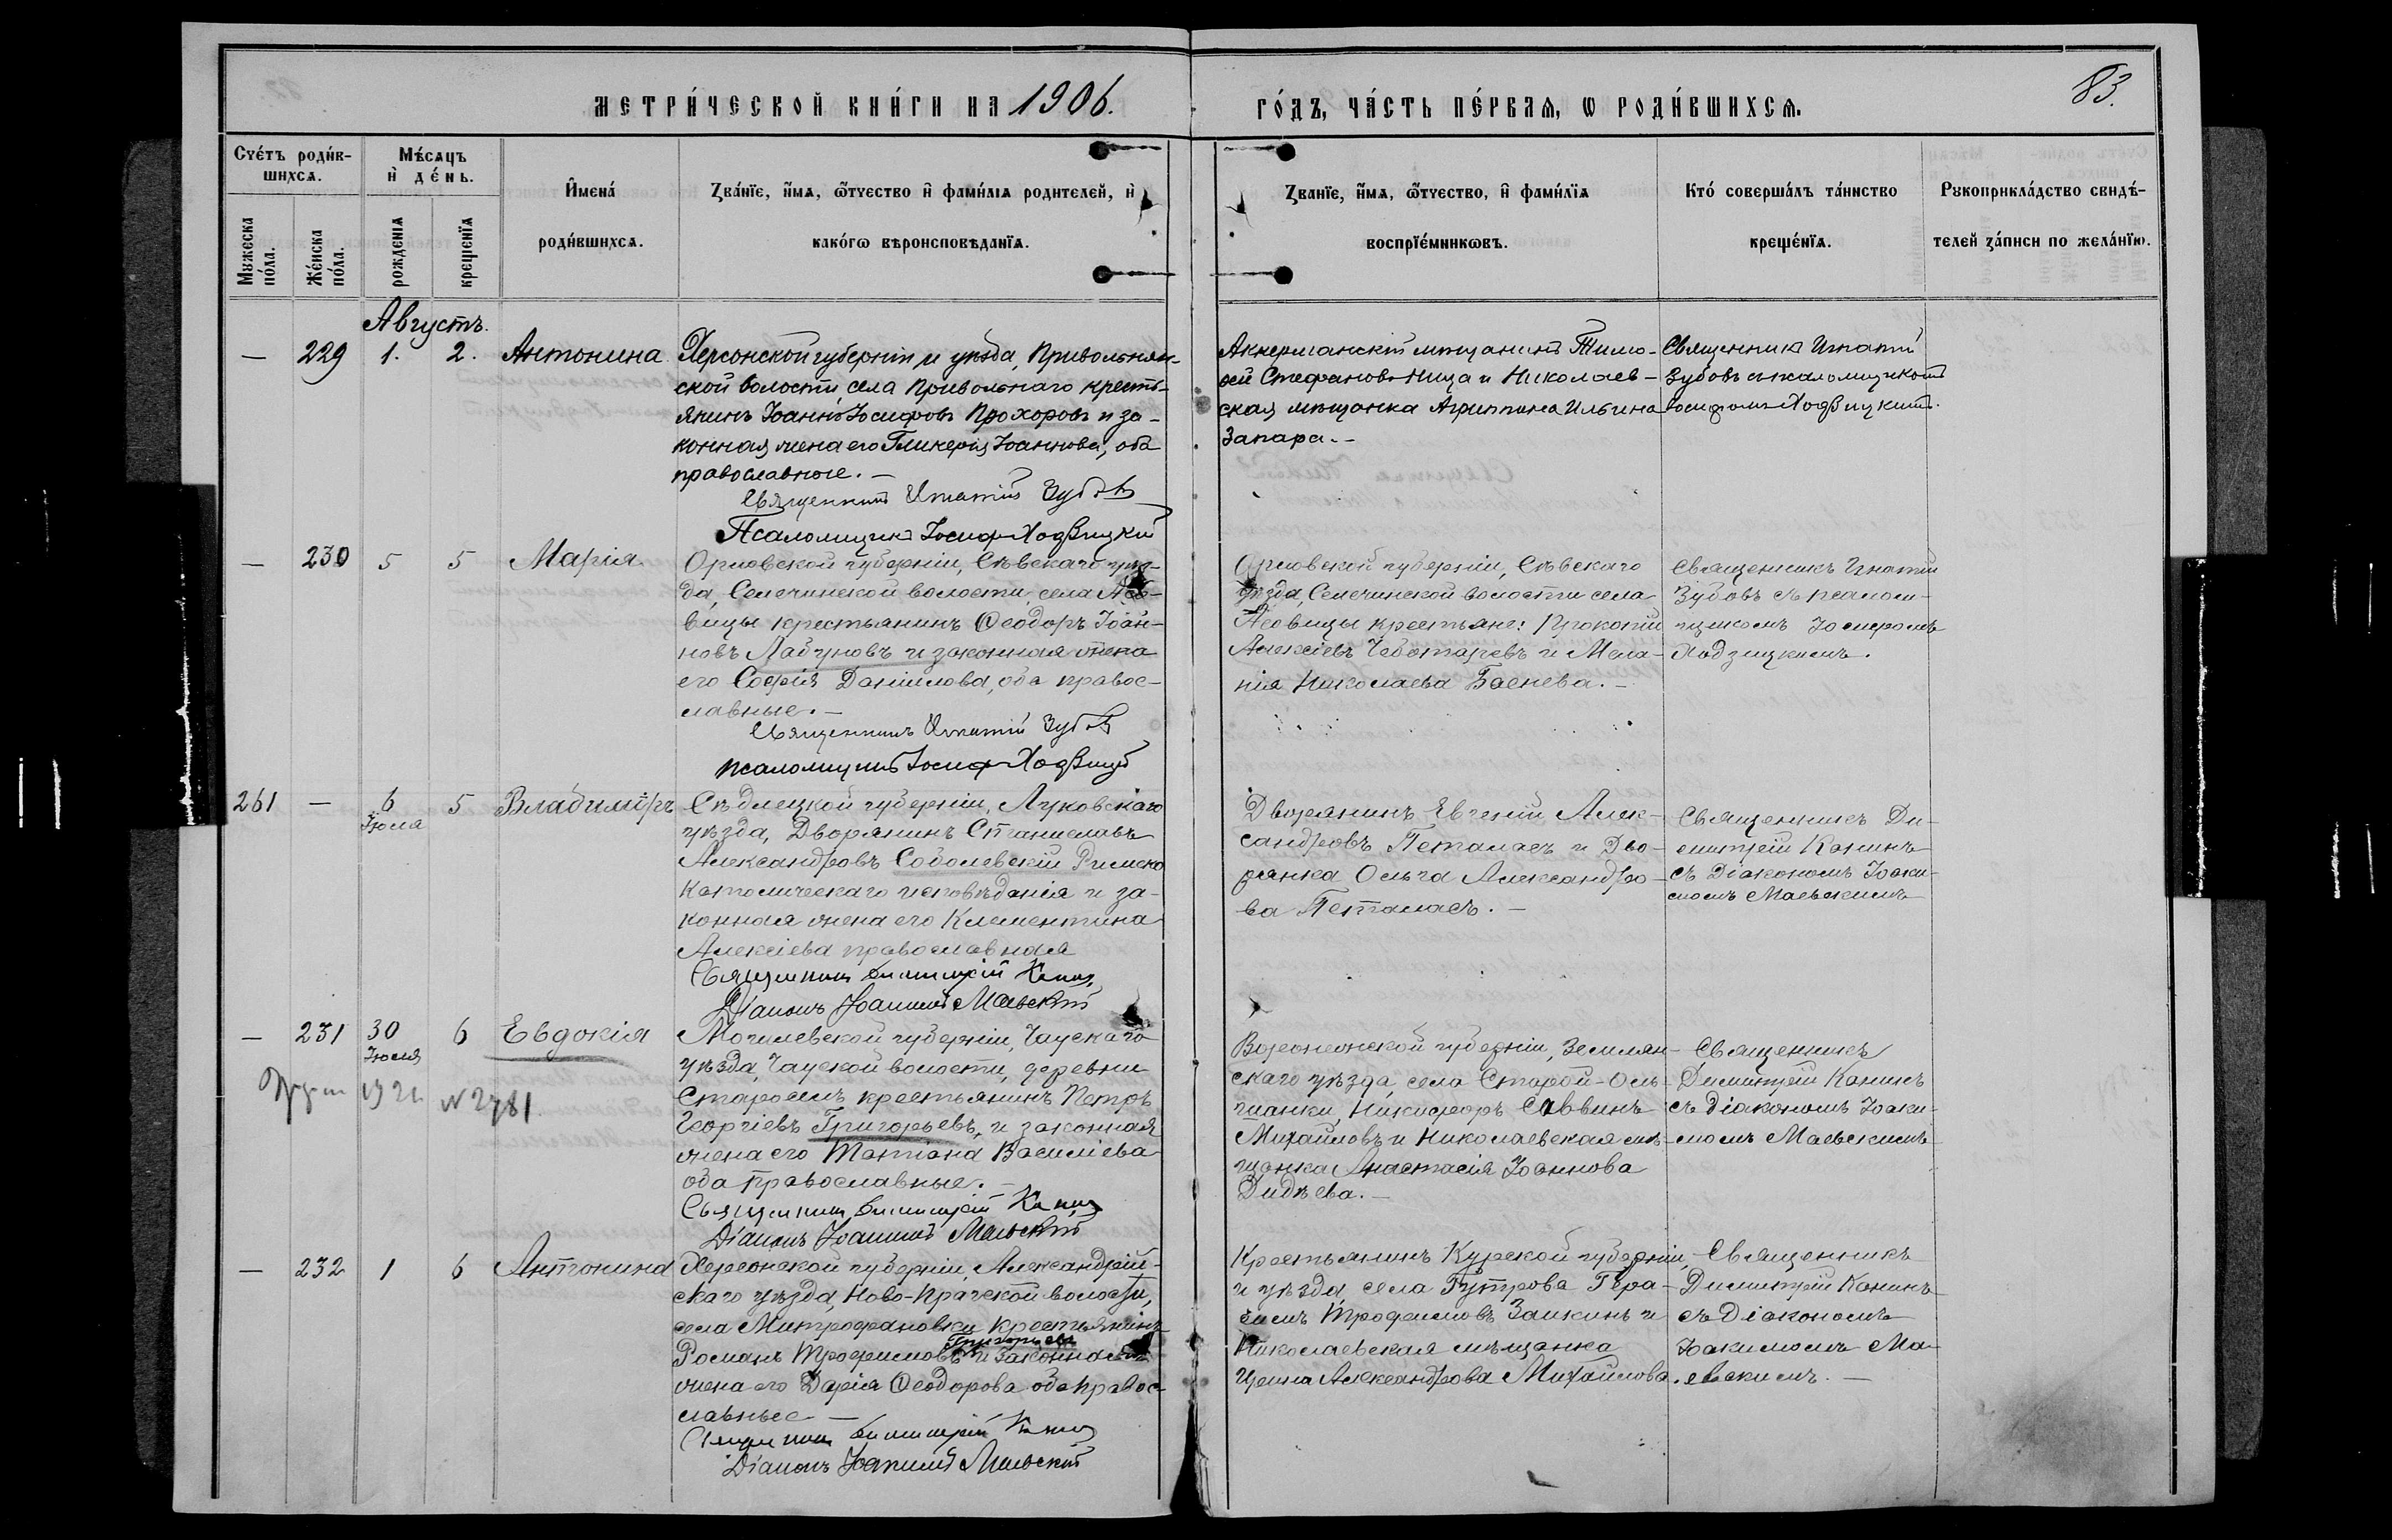 МЕТРИ́ЧЕСКОЙ КНИ́ГИ НА 1906.
ГО́ДЪ, ЧА́СТЬ ПЕ́РВАѦ, Ѡ РОДИ́ВШИХСѦ.
83.
Счéтъ роди́вшихсѧ.
Мꙋжеска по́ла.
Же́нска по́ла.
Мѣ́сѧцъ и҆ де́нь.
рожденїѧ
крещенїѧ
И҆мена́ роди́вшихсѧ.
Зва́нїе, и҆́мѧ, ѻ҆́тчество и҆ фами́лїѧ родителей, и҆
како́гѡ вѣроисповѣданїѧ.
Званїе, и҆́мѧ, ѻ҆́тчество, и҆ фами́лїѧ
воспрїе́мникѡвъ.
Кто́ соверша́лъ та́инство
креще́нїѧ.
Рꙋкоприкла́дство свидѣ́-
телей за́писи по жела́нїю.
Августъ.
— 229 1. 2. Антонина
Херсонской губерніи и уѣзда, Привольнян-
ской волости, села Привольнаго кресть-
янинъ Іоаннъ Іосифовъ Прохоровъ и за-
конная жена его Гликерія Іоаннова, оба
православные. —
Священникъ Игнатій Зубовъ
Псаломщикъ Іосифъ Ходзицкій
Аккерманскій мѣщанинъ Тимо-
ѳей Стефановъ Ница и Николаев-
ская мѣщанка Агриппина Ильина
Запара. —
Священникъ Игнатій
Зубовъ съ псаломщикомъ
Іосифомъ Ходзицкимъ.
— 230 5 5 Марія
Орловской губерніи, Сѣвскаго уѣз-
да, Семечинской волости, села
вицы крестьянинъ Ѳеодоръ Іоан-
новъ Лабуновъ и законная жена
его Софія Даніилова, оба правос-
лавные. —
Священникъ Игнатій Зубовъ
псаломщикъ Іосифъ Ходзицкій
Орловской губерніи, Сѣвскаго
уѣзда, Семечинской волости села
крестьяне: Прокопій
Алексіевъ Чеботаревъ и Мела-
нія Николаева Баенева. —
Священникъ Игнатій
Зубовъ съ псалом-
щикомъ Іосифомъ
Ходзицкимъ.
261 — 6 Іюля 5 Владиміръ
Сѣдлецкой губерніи, Луковскаго
уѣзда, Дворянинъ Станиславъ
Александровъ Соболевскій Римско
Католическаго исповѣданія и за-
конная жена его Клементина
Алексіева православная
Священникъ Димитрій Канинъ
Діаконъ Іоакимъ Маевскій
Дворянинъ Евгеній Алек-
сандровъ Петаласъ и Дво-
рянка Ольга Александро-
ва Петаласъ. —
Священникъ Ди-
митрій Канинъ
съ Діакономъ Іоаки-
момъ Маевскимъ
— 231 30 Іюля 6 Евдокія
1921 N 2781
Могилевской губерніи, Чаускаго
уѣзда, Чауской волости, деревни
крестьянинъ Петръ
Георгіевъ Григорьевъ, и законная
жена его Татіана Василіева
оба православные. —
Священникъ Димитрій Канинъ
Діаконъ Іоакимъ Маевскій
Воронежской губерніи, Землян-
скаго уѣзда, села Старой-Оль-
шанки, Никифоръ Саввинъ
Михайловъ и Николаевская мѣ-
щанка Анастасія Іоаннова
Дидѣева. —
Священникъ
Димитрій Канинъ
съ діакономъ Іоаки-
момъ Маевскимъ
— 232 1 6 Антонина
Херсонской губерніи, Александрій-
скаго уѣзда, Ново-Прагской волости,
села Митрофановки крестьянинъ
Григорьевъ
Романъ Трофимовъ и законная
жена его Дарія Ѳеодорова оба правос-
лавные —
Священникъ Димитрій Канинъ
Діаконъ Іоакимъ Маевскій
Крестьянинъ Курской губерніи,
и уѣзда, села Гутрова Гера-
симъ Трофимовъ Заикинъ и
Николаевская мѣщанка
Ирина Александрова Михайлова.
Священникъ
Димитрій Канинъ
съ Діакономъ
Іоакимомъ Ма-
евскимъ. —